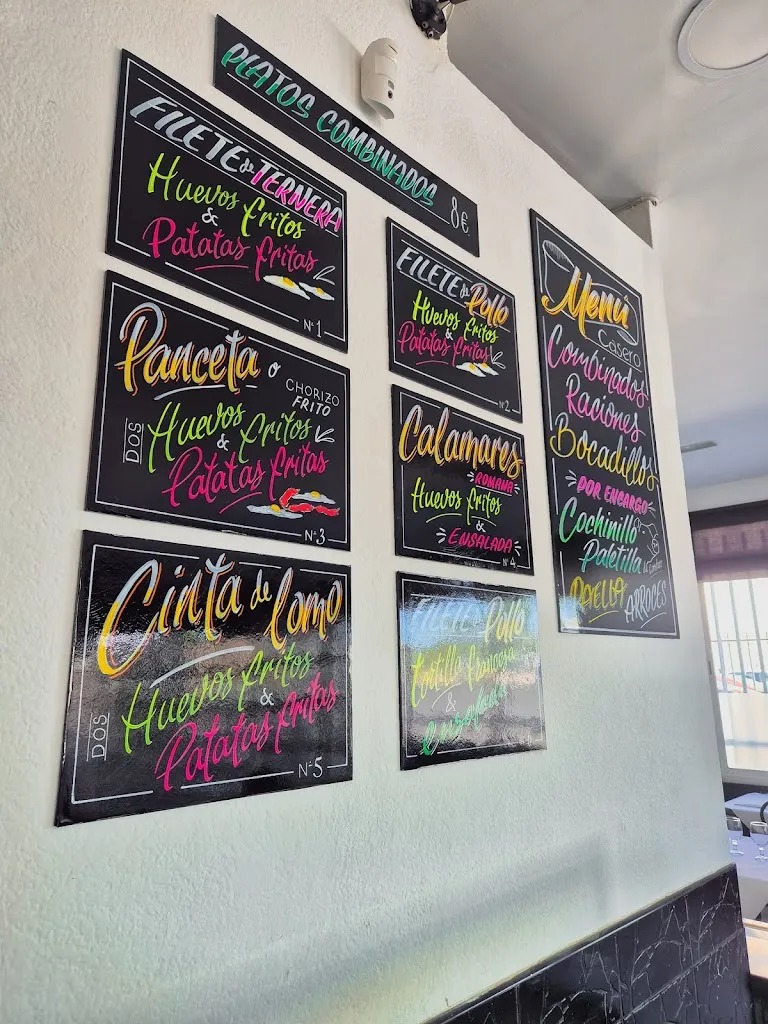 PLATOS COMBINADOS 8€
FILETE de TERNERA
Huevos fritos
&
Patatas fritas
Nº1
FILETE de Pollo
Huevos fritos
&
Patatas fritas
Nº2
Panceta o
CHORIZO
FRITO
DOS Huevos fritos
&
Patatas fritas
Nº3
Calamares
ROMANA
Huevos fritos
&
ENSALADA
Nº4
Cinta de lomo
DOS Huevos fritos
&
Patatas fritas
Nº5
FILETE de Pollo
tortilla francesa
&
ensalada
Menú
Casero
Combinados
Raciones
Bocadillos
POR ENCARGO
Cochinillo
Paletilla
PAELLA
ARROCES